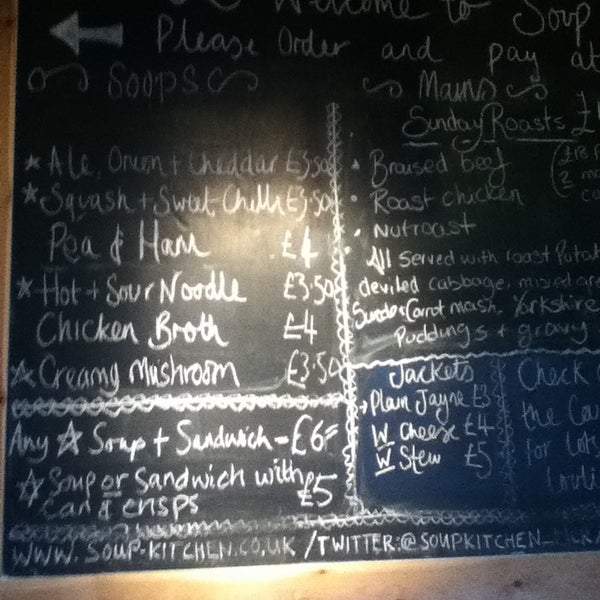 Welcome to Soup
Please Order and pay at
Soups
★ Ale, Onion + Cheddar £3.50
★ Squash + Sweet Chilli £3.50
Pea & Ham £4
★ Hot + Sour Noodle £3.50
Chicken Broth £4
★ Creamy Mushroom £3.50
Any ★ Soup + Sandwich = £6
★ Soup or Sandwich with £5
can & crisps
Mains
Sunday Roasts £
• Braised beef
• Roast chicken
• Nutroast
All served with roast Potat
deviled cabbage, mixed
Carrot mash, Yorkshire
Puddings + gravy
Jackets
Plain Jayne £3
W Cheese £4
W Stew £5
Check
the
for lots
WWW.SOUP-KITCHEN.CO.UK /TWITTER:@SOUPKITCHEN_